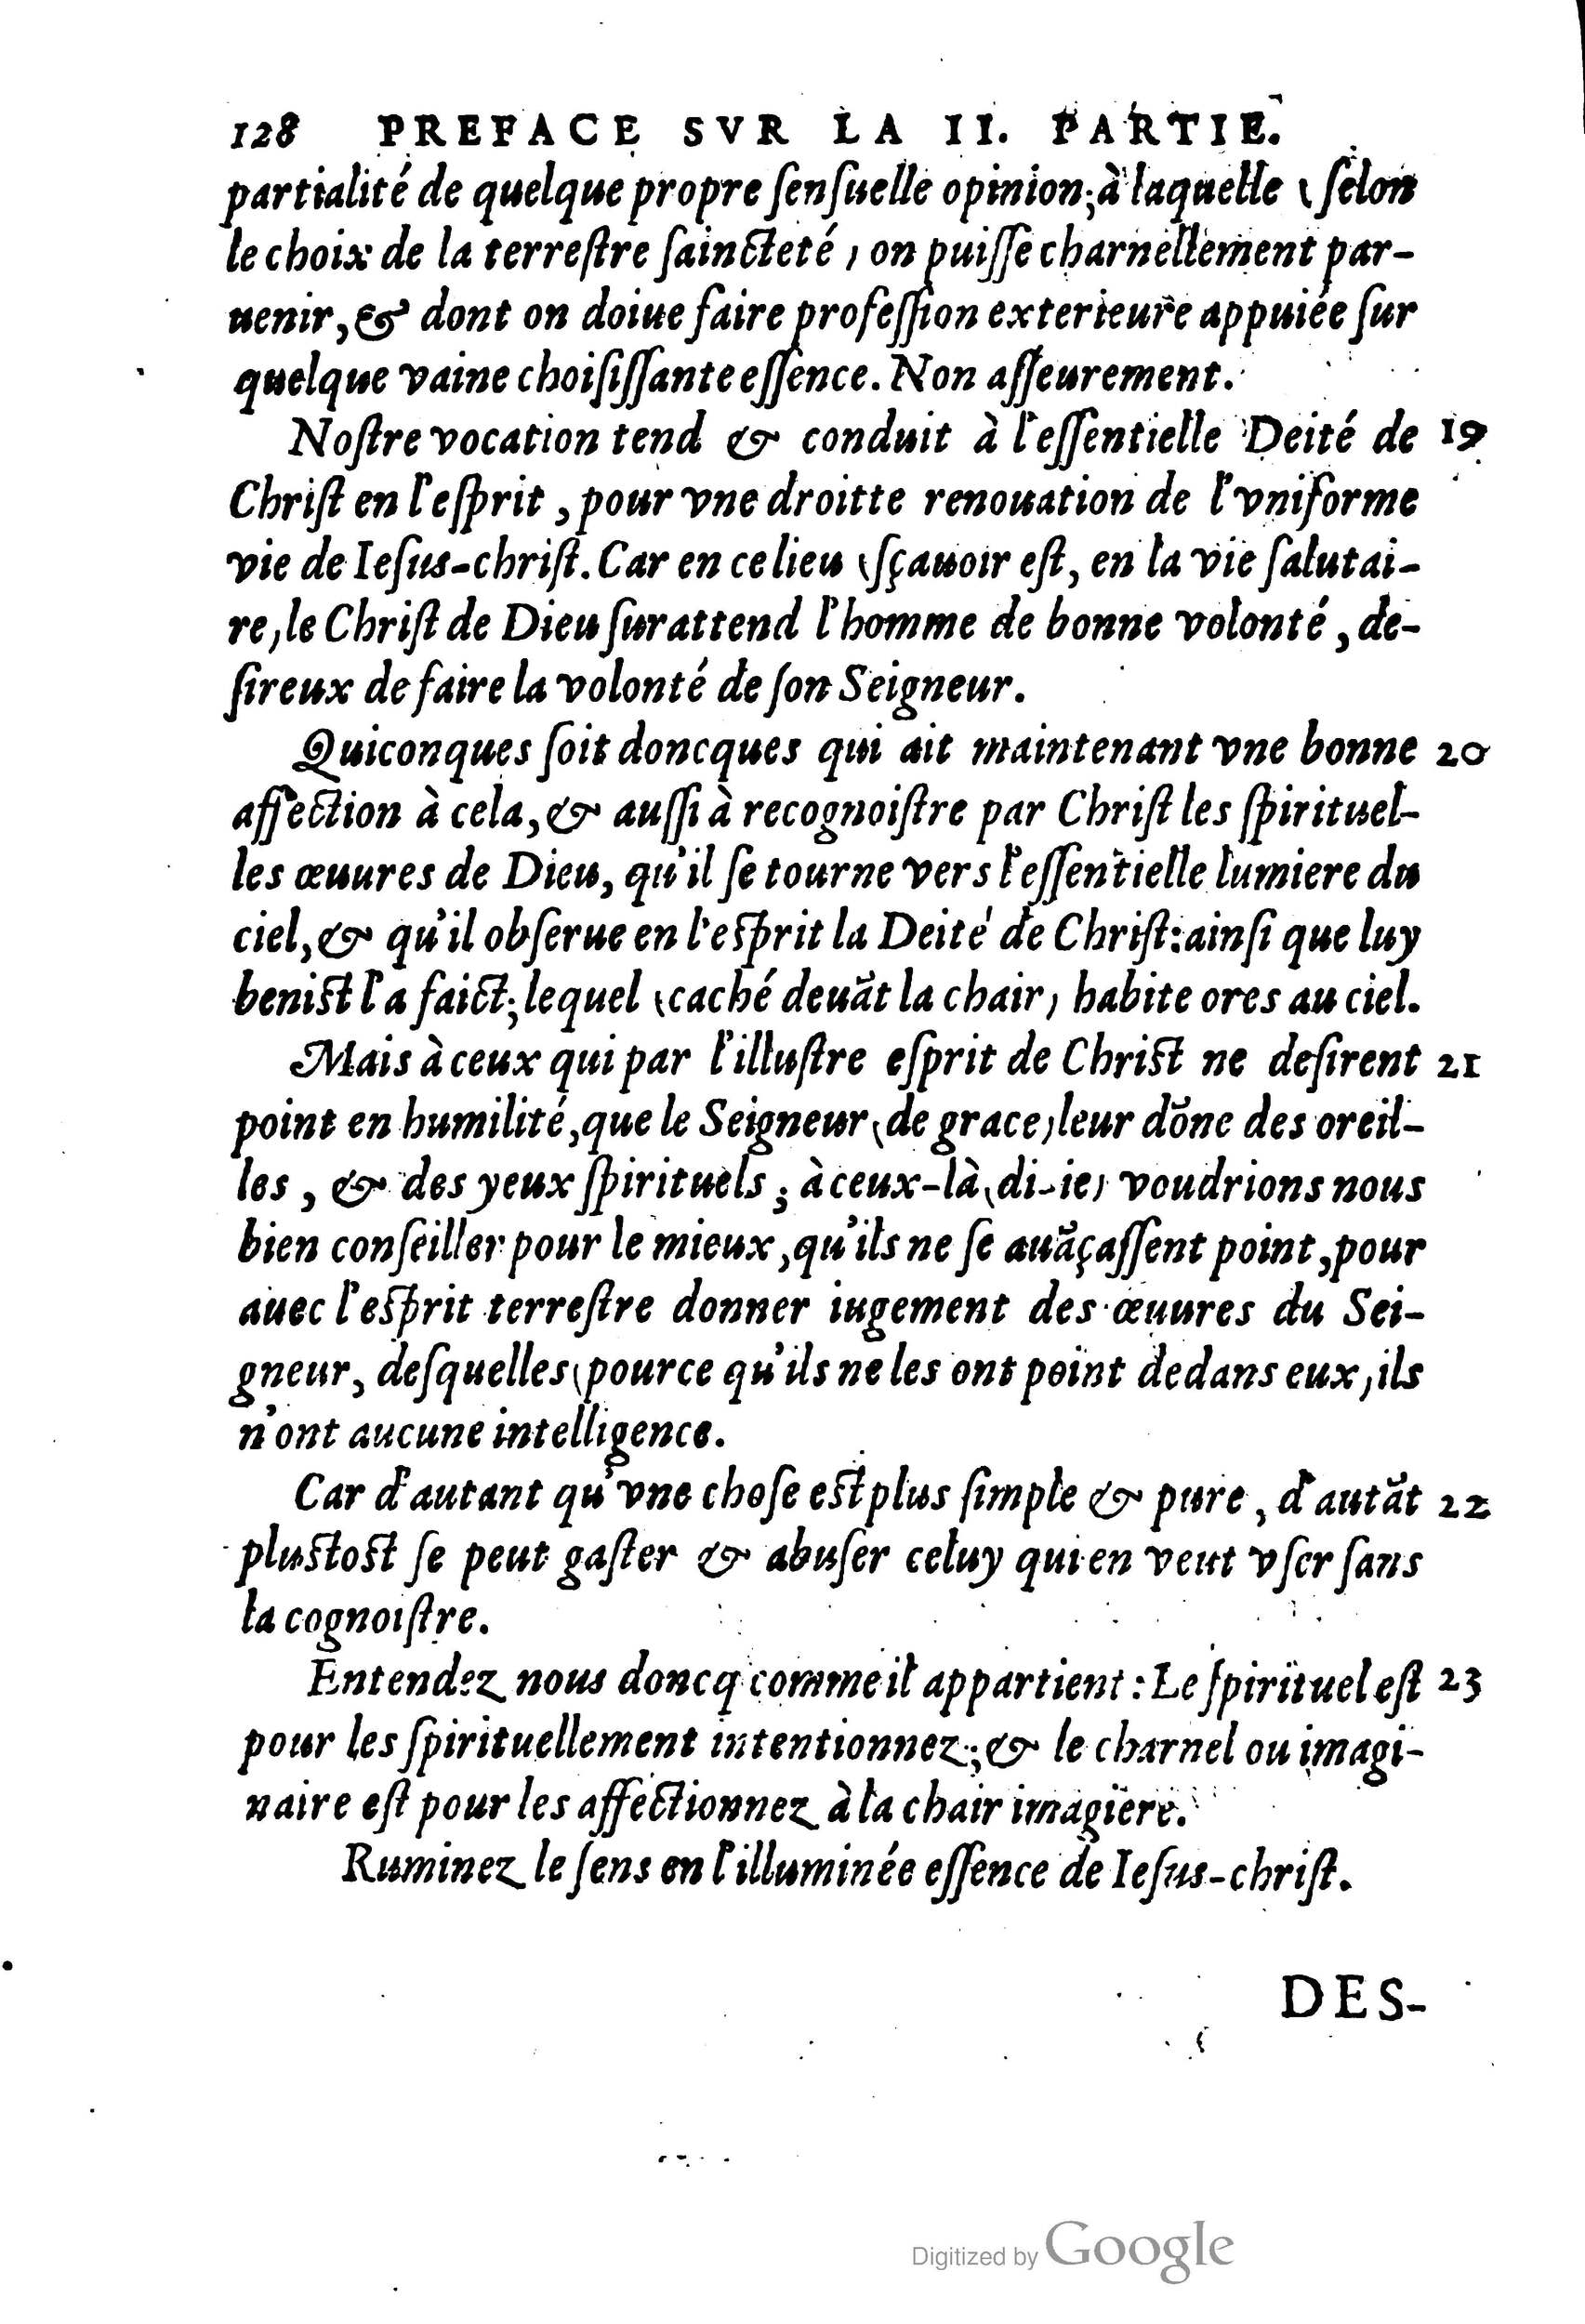 128 PREFACE SVR LA II. PARTIE.
partialité de quelque propre ſenſuelle opinion; à laquelle (ſelon
le choix de la terreſtre ſaincteté) on puiſſe charnellement par-
uenir, & dont on doiue faire profeſſion exterieure appuiée ſur
quelque vaine choiſiſſante eſſence. Non aſſeurement.
Noſtre vocation tend & conduit à l'eſſentielle Deité de 19
Chriſt en l'eſprit, pour vne droitte renouation de l'vniforme
vie de Ieſus-chriſt. Car en ce lieu (ſçauoir eſt, en la vie ſalutai-
re) le Chriſt de Dieu ſurattend l'homme de bonne volonté, de-
ſireux de faire la volonté de ſon Seigneur.
Quiconques ſoit doncques qui ait maintenant vne bonne 20
affection à cela, & auſſi à recognoiſtre par Chriſt les ſpirituel-
les œuures de Dieu, qu'il ſe tourne vers l'eſſentielle lumiere du
ciel, & qu'il obſerue en l'eſprit la Deité de Chriſt: ainſi que luy
beniſt l'a faict; lequel (caché deuāt la chair) habite ores au ciel.
Mais à ceux qui par l'illuſtre eſprit de Chriſt ne deſirent 21
point en humilité, que le Seigneur (de grace) leur dōne des oreil-
les, & des yeux ſpirituels; à ceux-là (di-ie) voudrions nous
bien conſeiller pour le mieux, qu'ils ne ſe auāçaſſent point, pour
auec l'eſprit terreſtre donner iugement des œuures du Sei-
gneur, deſquelles (pource qu'ils ne les ont point dedans eux) ils
n'ont aucune intelligence.
Car d'autant qu'vne choſe eſt plus ſimple & pure, d'autāt 22
pluſtoſt ſe peut gaſter & abuſer celuy qui en veut vſer ſans
la cognoiſtre.
Entendez nous doncq comme il appartient: Le ſpirituel eſt 23
pour les ſpirituellement intentionnez; & le charnel ou imagi-
naire eſt pour les affectionnez à la chair imagiere.
Ruminez le ſens en l'illuminée eſſence de Ieſus-chriſt.
DES-
Digitized by Google